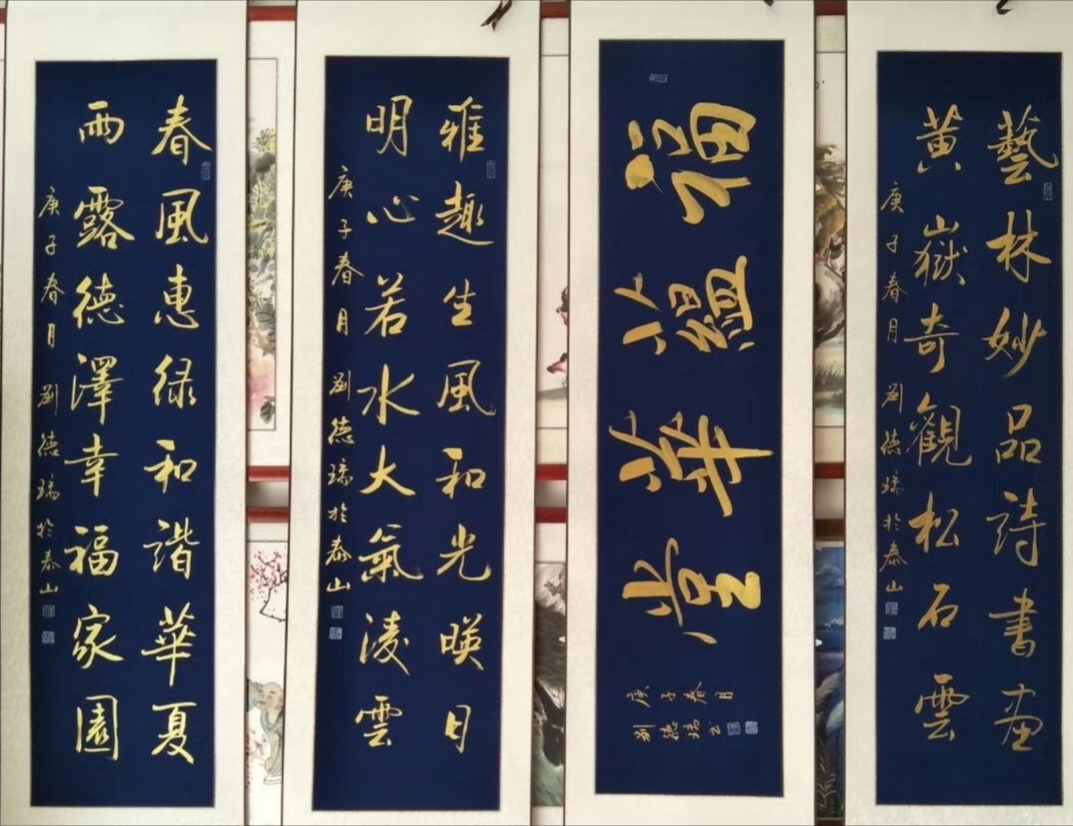 藝林妙品詩書畫
黄嶽奇觀松石雲
庚子春月 劉德瑞於泰山
福蘊華堂
庚子春月
劉德瑞书
雅趣生風和光暎月
明心若水大氣淩雲
庚子春月 劉德瑞於泰山
春風惠緑和諧華夏
雨露德澤幸福家園
庚子春月 劉德瑞於泰山